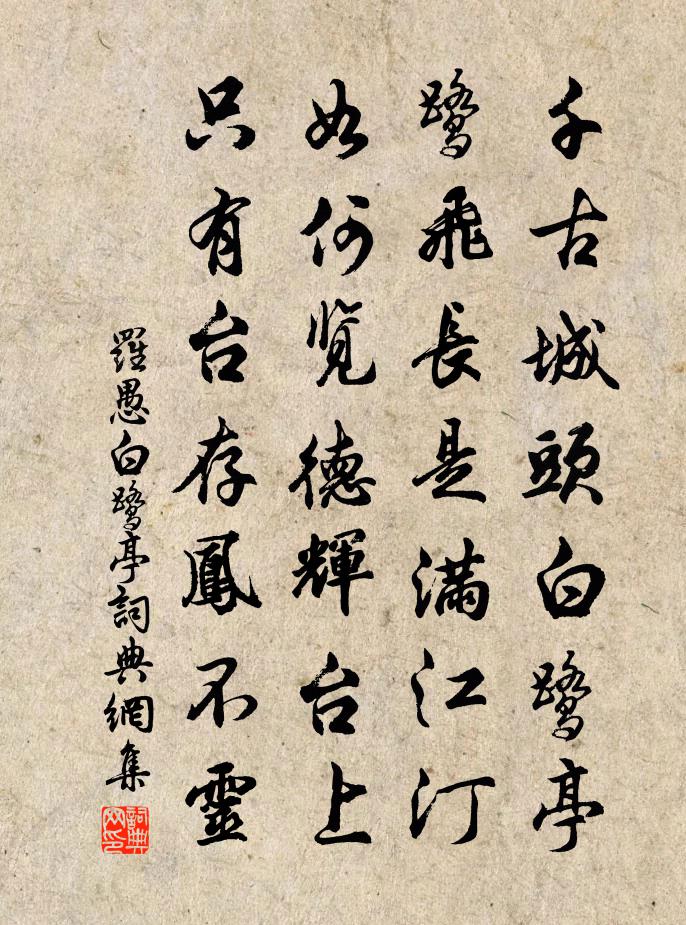 千古城頭白鹭亭
鹭飛長是滿江汀
如何覽德輝台上
只有台存鳳不靈
羅愚白鹭亭詞典網集
詞典网印